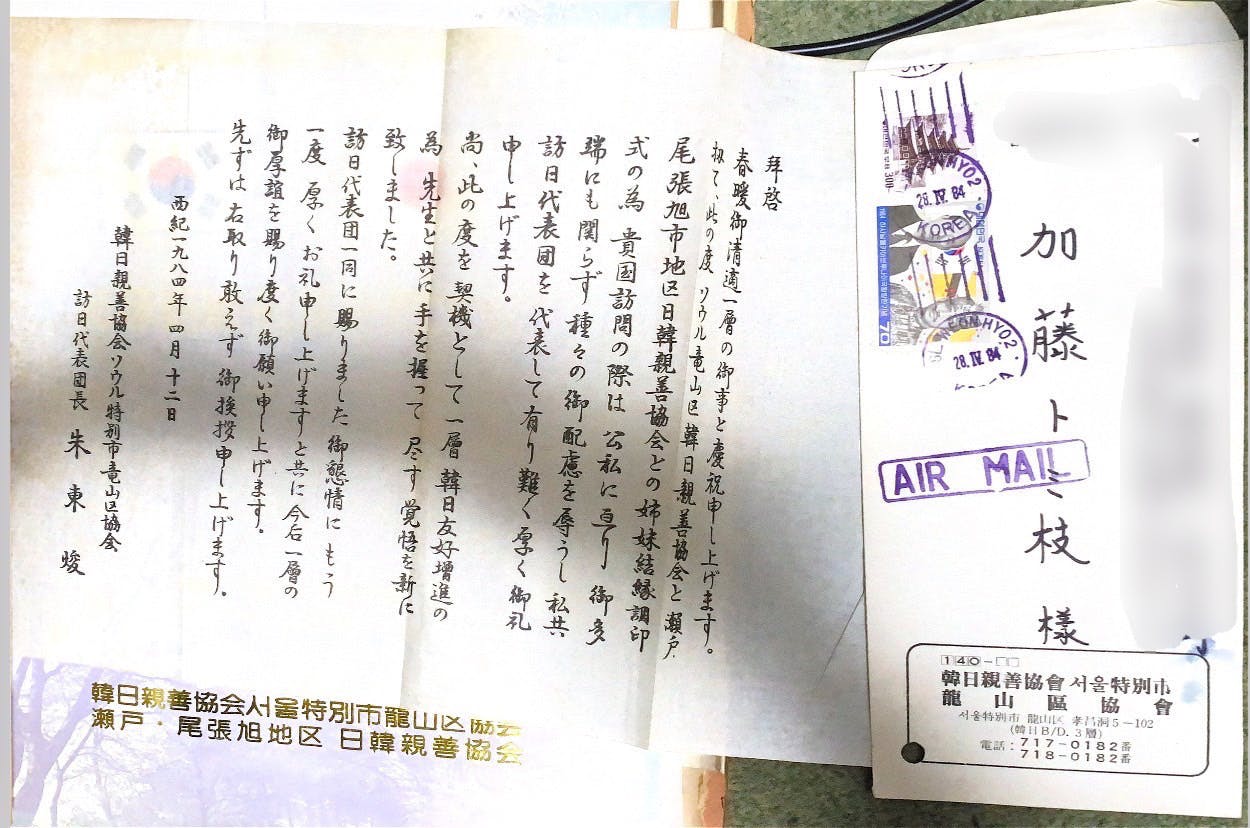 拝啓
春暖御清適一層の御事と慶祝申し上げます。
扨て、此の度 ソウル竜山区 韓日親善協会と 瀬戸、
尾張旭市地区日韓親善協会との姉妹結縁調印
式の為 貴国訪問の際は 公私に亘り 御多
端にも関らず 種々の御配慮を辱うし 私共
訪日代表団を 代表して有り難く厚く御礼
申し上げます。
尚、此の度を契機として 一層 韓日友好増進の
為 先生と共に 手を握って 尽す覚悟を新に
致しました。
訪日代表団一同に賜りました御懇情に もう
一度 厚く お礼申し上げますと共に今后一層の
御厚誼を賜り度く御願い申し上げます。
先ずは右取り敢えず 御挨拶申し上げます。
西紀一九八四年 四月 十二日
韓日親善協会ソウル特別市竜山区協会
訪日代表団長 朱東峻
韓日親善協会서울特別市龍山区協会
瀬戸・尾張旭地区 日韓親善協会
300
28.IV.84
KOREA
70
28.IV.84
加藤トミ枝様
AIR MAIL
140-
韓日親善協會서울特別市
龍山區協會
서울特別市 龍山区 孝昌洞5-102
(韓日B/D.3層)
電話:717-0182番
718-0182番